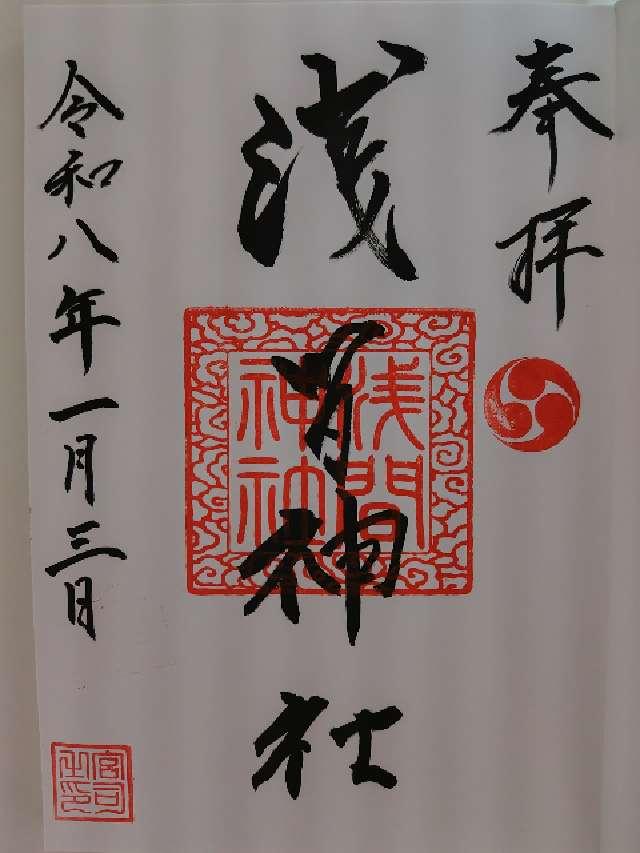 奉拝
浅間神社
浅間神社
令和八年一月三日
宮司之印